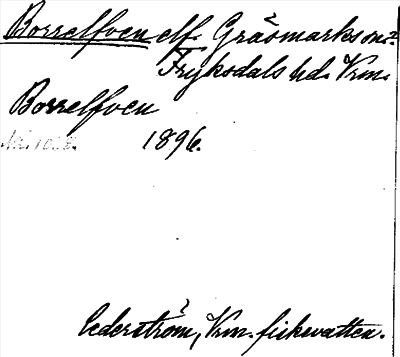 Borrelfven elf. Gräsmarks sn.
Fryksdals hd. Vrm.
Borrelfven
1896.
Cederström, Vrm. fiskevatten.